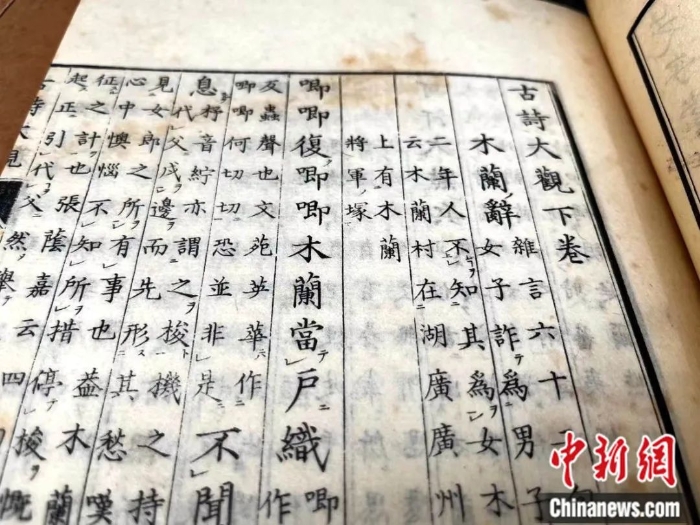 古詩大觀下卷
木蘭辭
雜言六十
女子詐テ為男子
二年人不知其為女木
云木蘭村在湖廣廣州
上有木蘭
將軍ノ塚
唧唧復唧唧木蘭當戶織
唧
作
及蟲聲也文苑英華作
唧唧何切切恐並非是
不聞
息
抒音紵亦謂之梭ト機之持
代父戍邊而先形其愁嘆
見女郎之所有事也蓋木蘭
心中懊惱不知所措停梭慨
征之計也張蔭嘉云四
起正引代父然
中新网
Chinanews.com